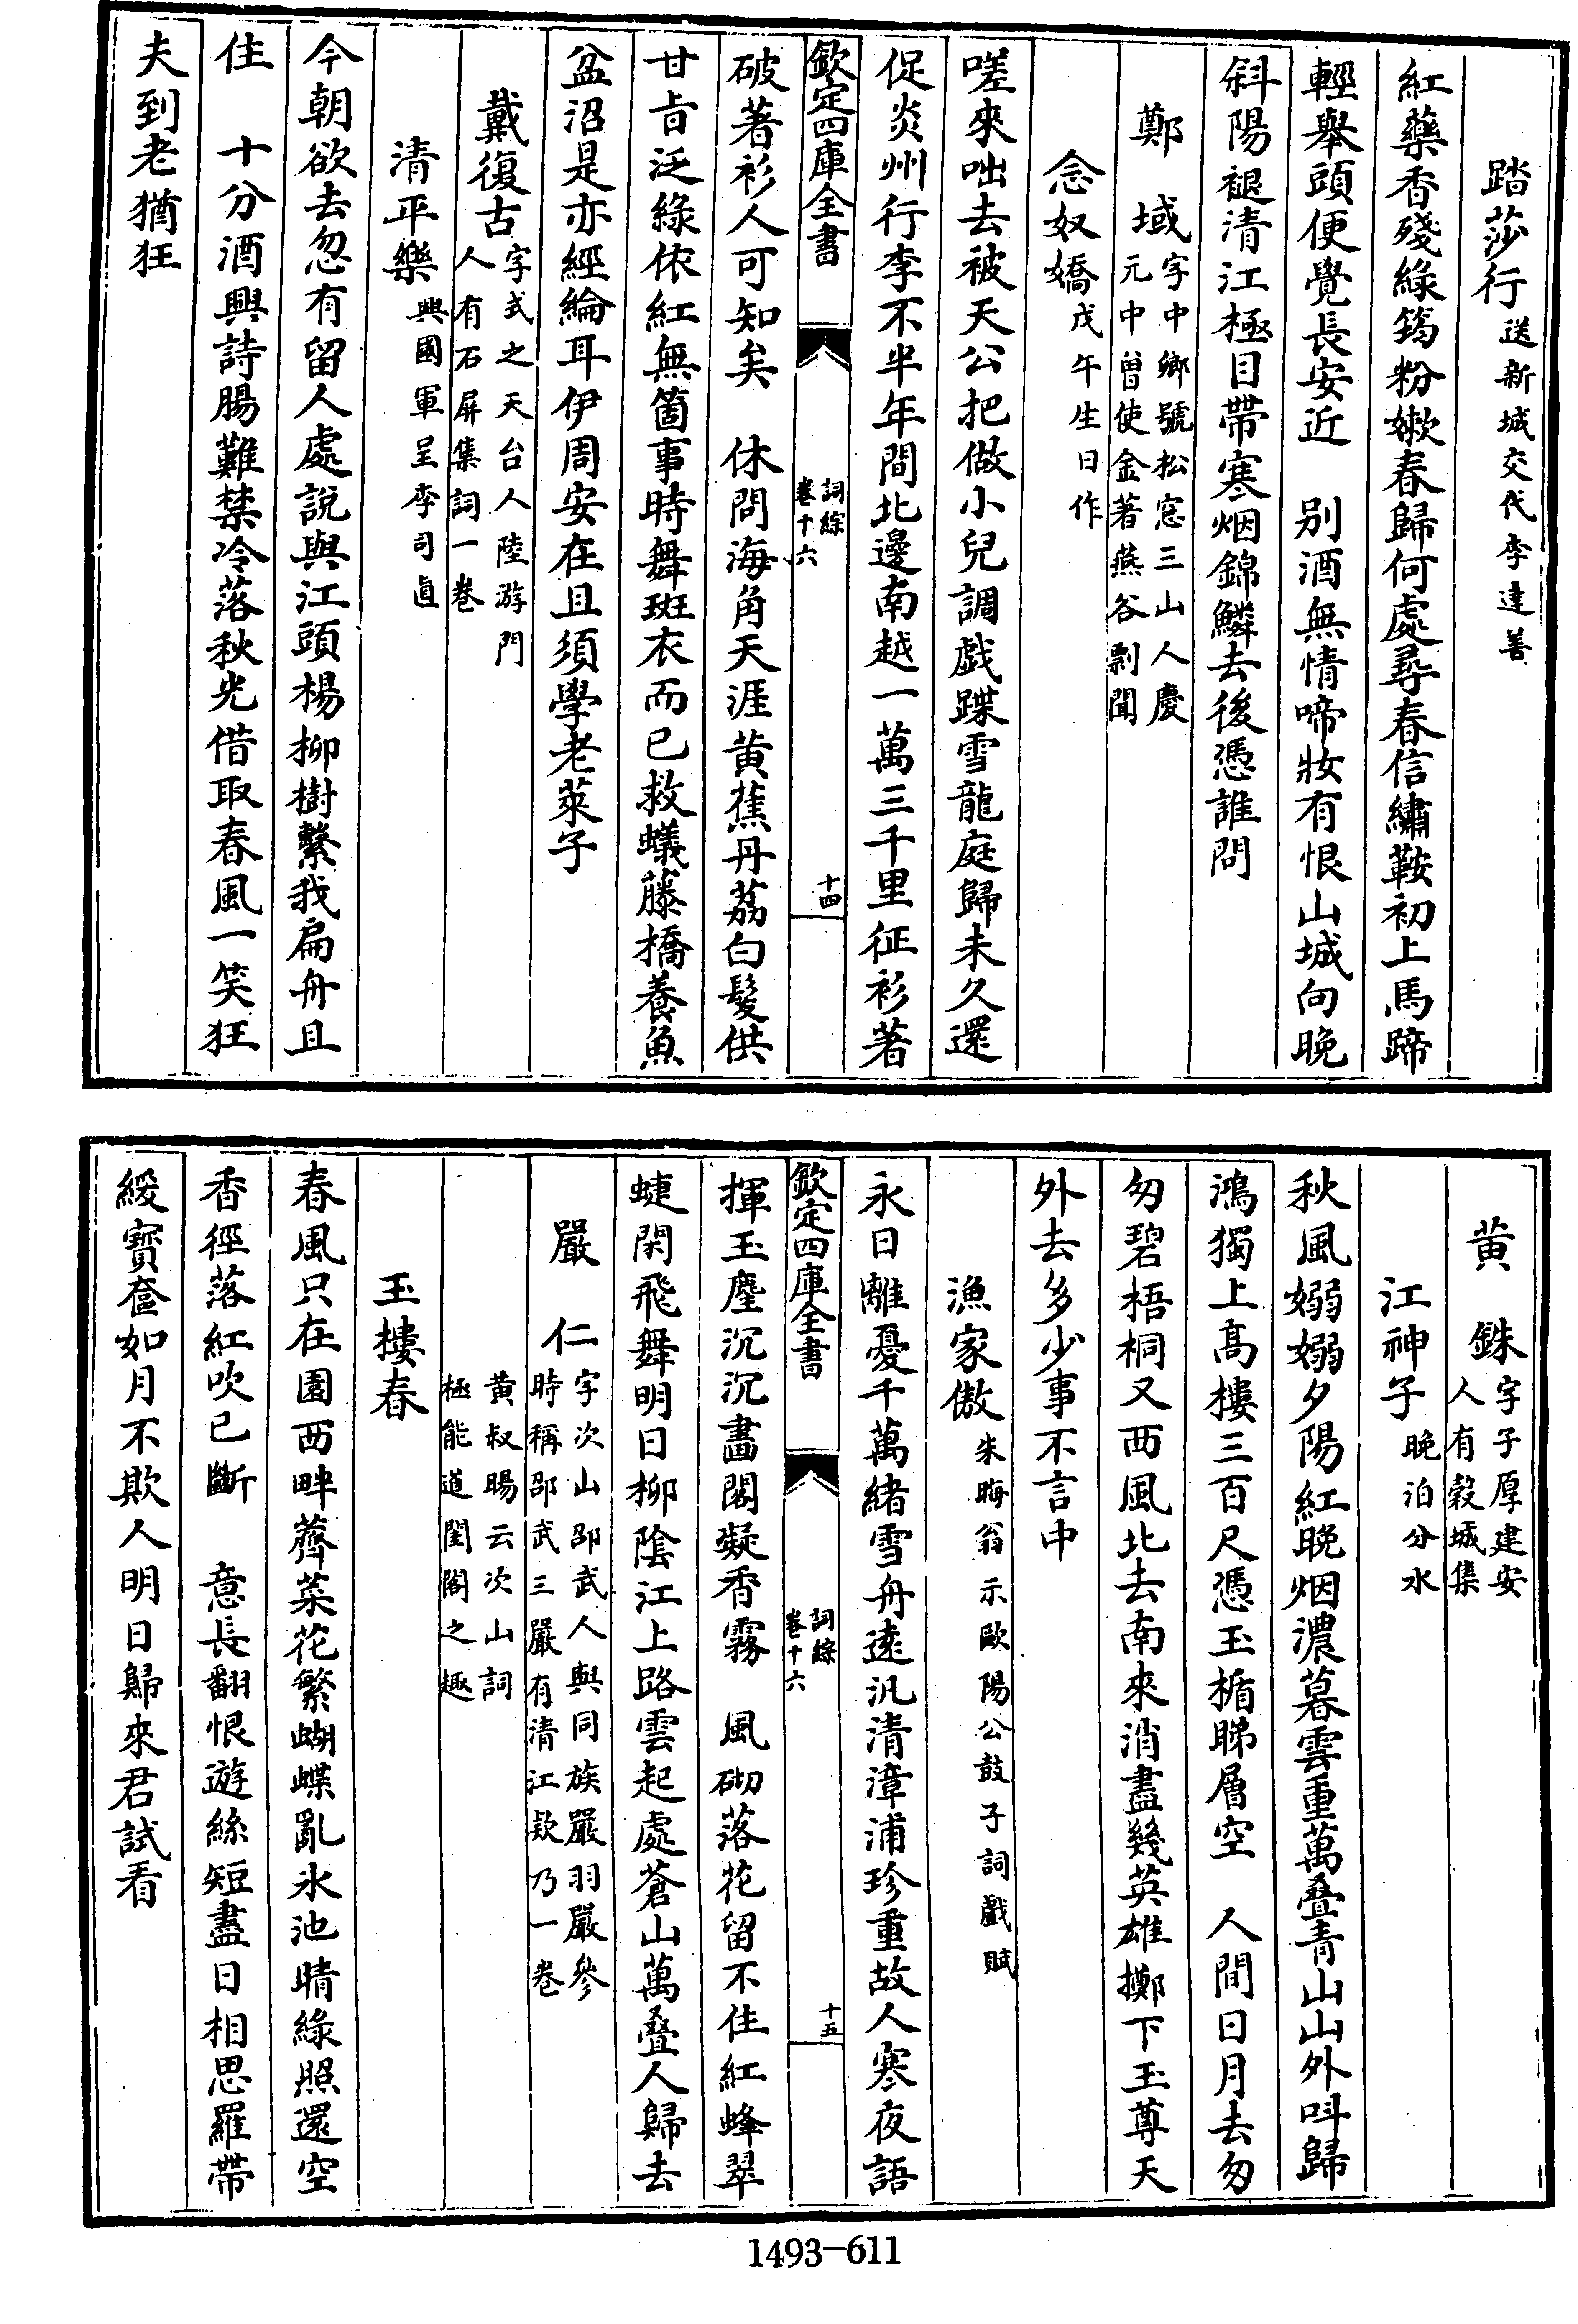 踏莎行送新城交代李達善
紅藥香殘綠筠粉嫰春歸何處尋春信繡鞍初上馬蹄
輕舉頭便覺長安近　別酒無情啼妝有恨山城向晚
斜陽褪清江極目帶寒烟錦鱗去後憑誰問
鄭　域字中卿號松窓三山人慶
元中曾使金著燕谷剽聞
念奴嬌戊午生日作
嗟來咄去被天公把做小兒調戯蹀雪龍庭歸未久還
促炎州行李不半年間北邊南越一萬三千里征衫著
欽定四庫全書
詞綜
卷十六
十四
破著衫人可知矣　休問海角天涯黄蕉丹荔白髮供
甘旨泛綠依紅無箇事時舞斑衣而已救蟻藤橋養魚
盆沼是亦經綸耳伊周安在且須學老萊子
戴復古字式之天台人陸游門
人有石屏集詞一卷
清平樂興國軍呈李司直
今朝欲去忽有留人處說與江頭楊柳樹繫我扁舟且
住　十分酒興詩腸難禁冷落秋光借取春風一笑狂
夫到老猶狂
黄　銖字子厚建安
人有穀城集
江神子晚泊分水
秋風嫋嫋夕陽紅晚烟濃暮雲重萬疊青山山外呌歸
鴻獨上髙樓三百尺憑玉楯睇層空　人間日月去匆
匆碧梧桐又西風北去南來消盡幾英雄擲下玉尊天
外去多少事不言中
漁家傲朱晦翁示歐陽公鼓子詞戯賦
永日離憂千萬緒雪舟逺汎清漳浦珍重故人寒夜語
欽定四庫全書
詞綜
卷十六
十五
揮玉麈沉沉畵閣凝香霧　風砌落花留不住紅蜂翠
蜨閑飛舞明日柳陰江上路雲起處蒼山萬疊人歸去
嚴　仁字次山邵武人與同族嚴羽嚴參
時稱邵武三嚴有清江欵乃一卷
黄叔暘云次山詞
極能道閨閤之趣
玉樓春
春風只在園西畔薺菜花繁蝴蝶亂氷池晴綠照還空
香徑落紅吹已斷　意長翻恨遊絲短盡日相思羅帶
緩寶奩如月不欺人明日歸來君試看
1493-611